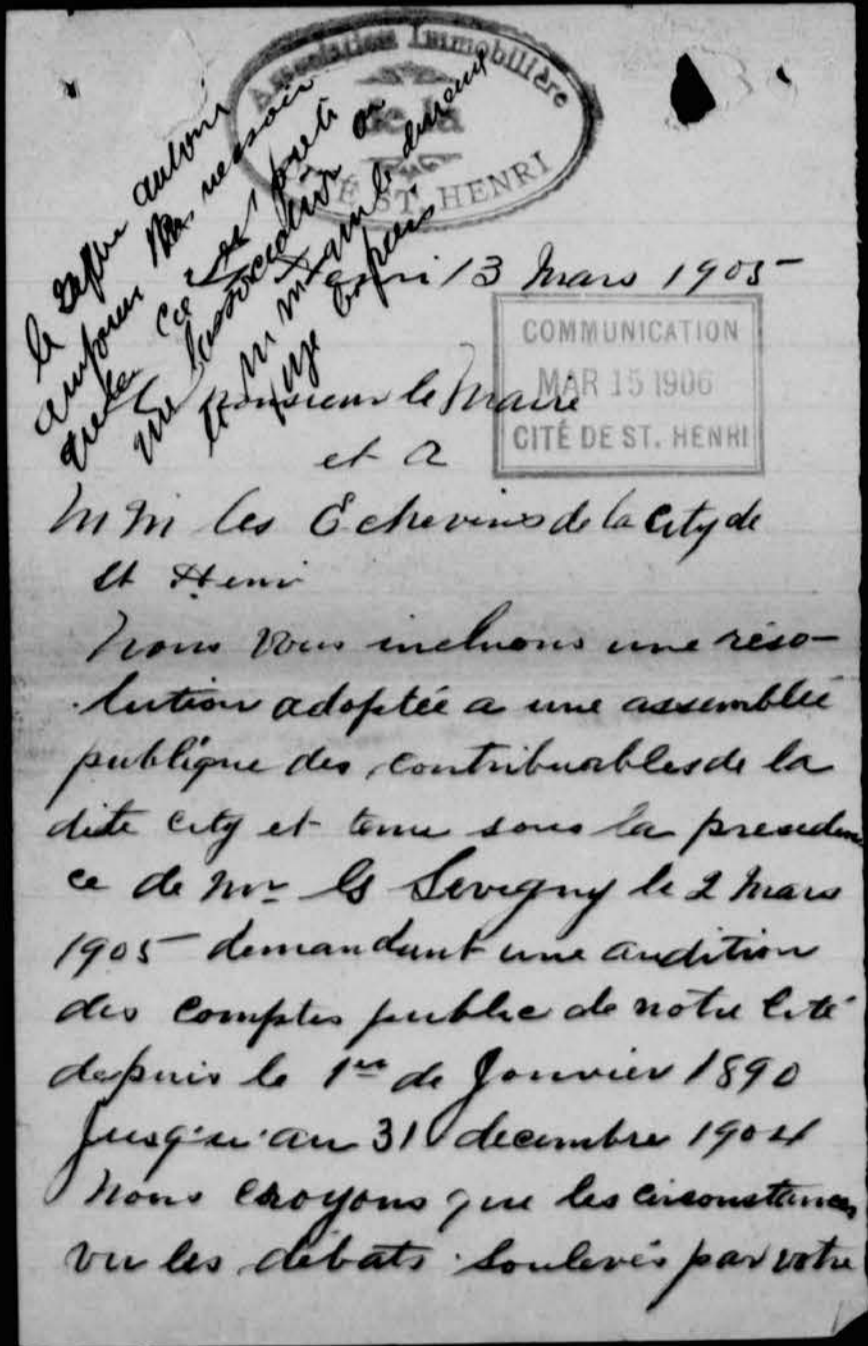 Association Immobilière
de la
CITÉ ST. HENRI
le
que la Cie est prete
l'association
le
St Henri 13 Mars 1905
COMMUNICATION
MAR 15 1906
CITÉ DE ST. HENRI
A Monsieur le Maire
et a
MM les Echevins de la City de
St Henri
Nous vous incluons une réso-
lution adoptée a une assemblée
publique des contribuables de la
dite City et tenu sous la presiden
ce de Mr Sevigny le 2 Mars
1905 demandant une audition
des comptes public de notre Cité
depuis le 1er de Janvier 1890
Jusqu'au 31 decembre 1904
Nous croyons que les circonstances
vu les débats soulevés par votre